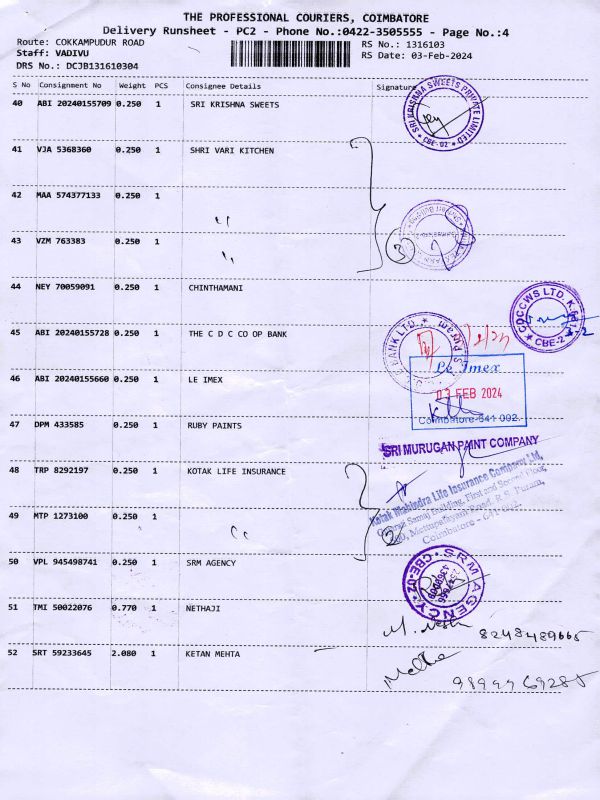 THE PROFESSIONAL COURIERS, COIMBATORE
Delivery Runsheet - PC2 - Phone No.:0422-3505555 - Page No.:4
Route: COKKAMPUDUR ROAD
RS No.: 1316103
Staff: VADIVU
RS Date: 03-Feb-2024
DRS No.: DCJB131610304
S No Consignment No Weight PCS Consignee Details Signature
40 ABI 20240155709 0.250 1 SRI KRISHNA SWEETS
SRI KRISHNA SWEETS PRIVATE LIMITED
CBE-02
41 VJA 5368360 0.250 1 SHRI VARI KITCHEN
42 MAA 574377133 0.250 1 "
43 VZM 763383 0.250 1 "
3
44 NEY 70059091 0.250 1 CHINTHAMANI
CBE-2
45 ABI 20240155728 0.250 1 THE C D C CO OP BANK
BANK LTD.
46 ABI 20240155660 0.250 1 LE IMEX
Le Imex
03 FEB 2024
Coimbatore-641 002.
47 DPM 433585 0.250 1 RUBY PAINTS
SRI MURUGAN PAINT COMPANY
48 TRP 8292197 0.250 1 KOTAK LIFE INSURANCE
Kotak Mahindra Life Insurance Company Ltd,
Gujarati Samaj Building, First and Second Floor,
Mettupalayam Road, R.S. Puram,
Coimbatore - 641
49 MTP 1273100 0.250 1 "
2
50 VPL 945498741 0.250 1 SRM AGENCY
SRM AGENCY
CBE-02
51 TMI 50022076 0.770 1 NETHAJI
8248489665
52 SRT 59233645 2.080 1 KETAN MEHTA